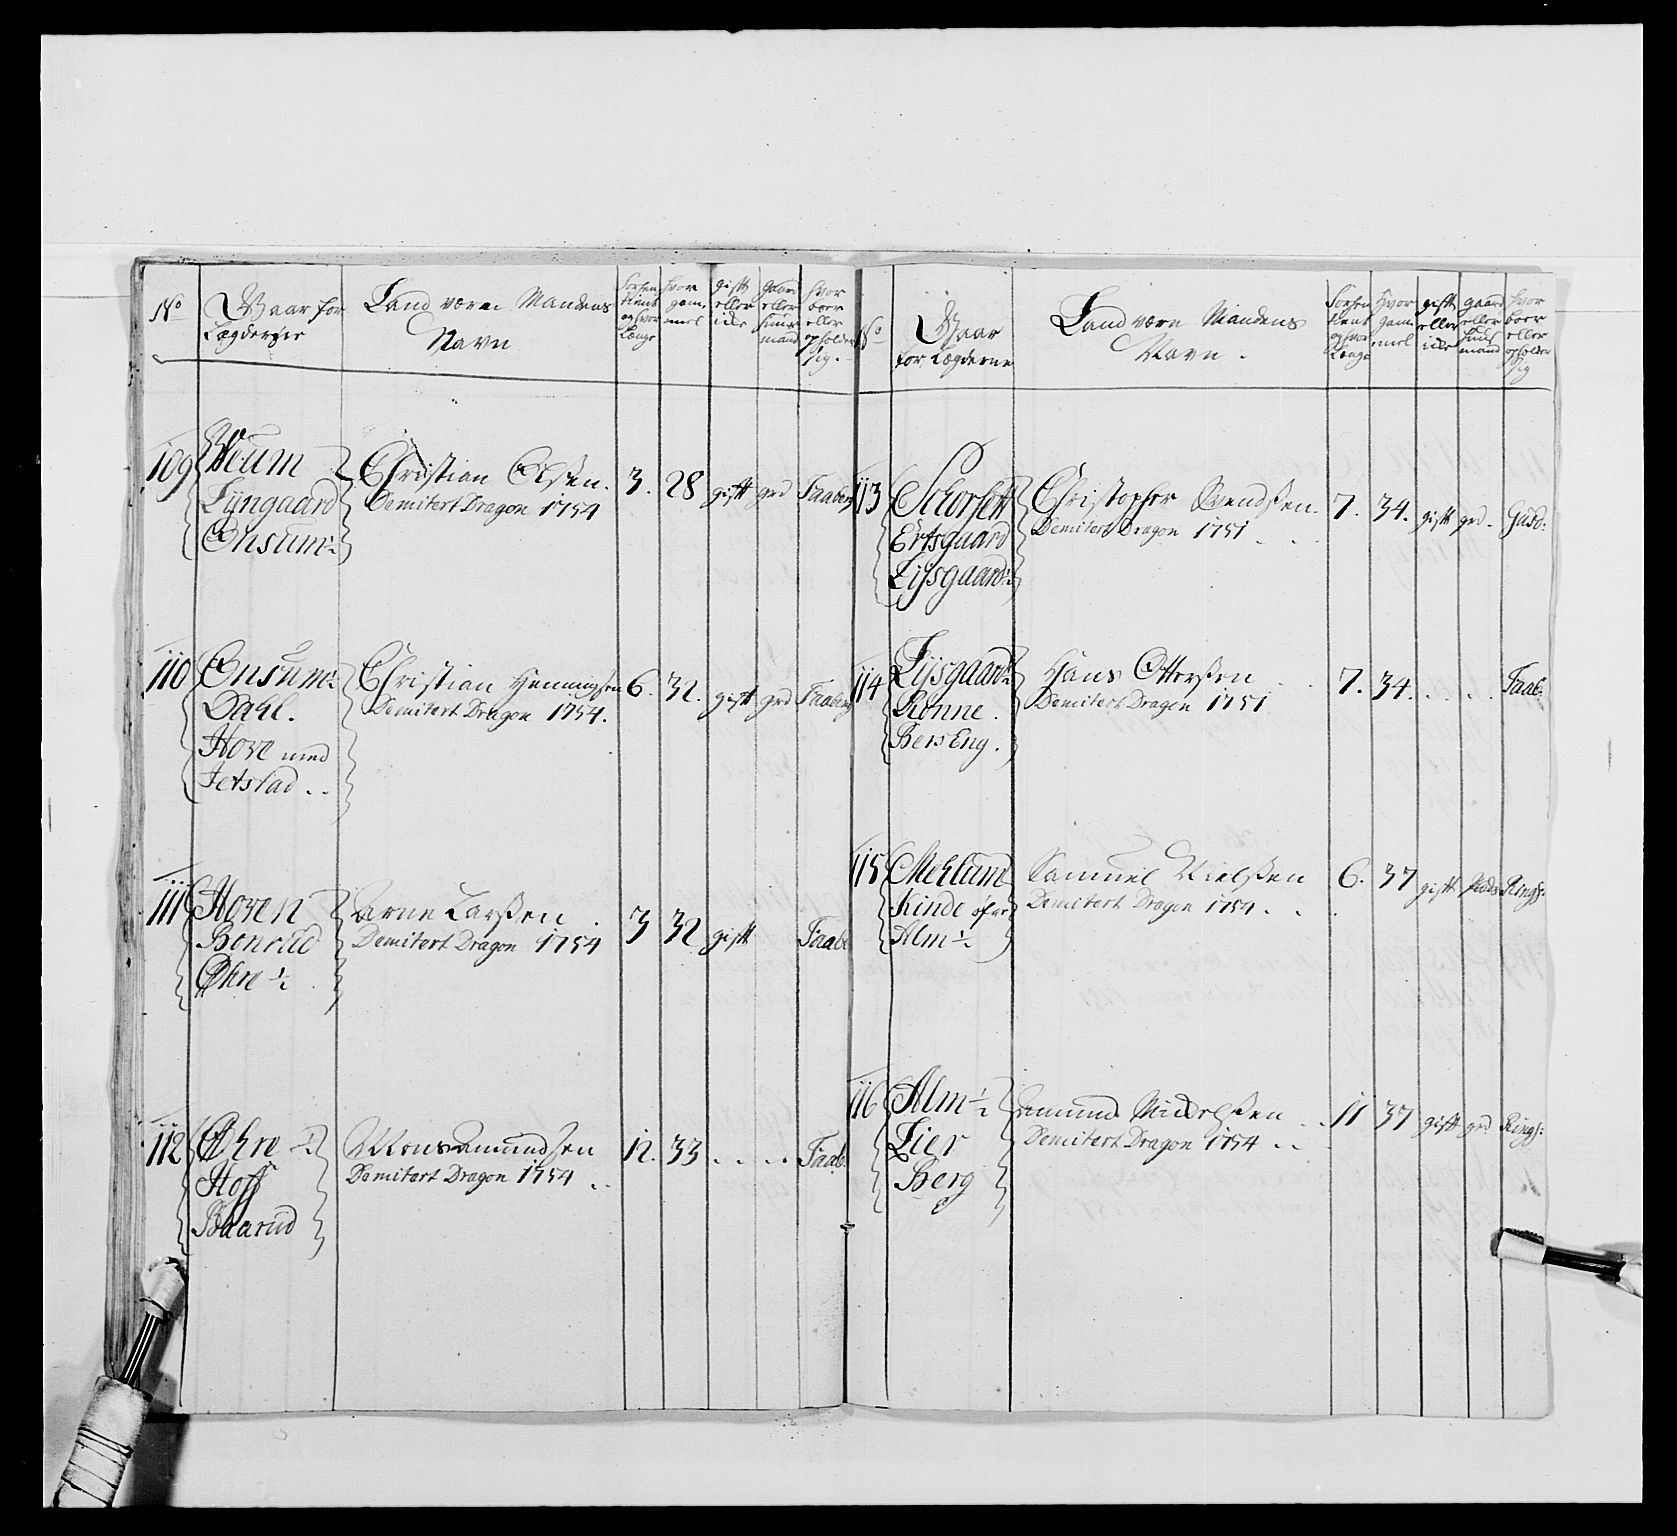 No
Gaar for
Lægderne
Land værn Mandens
Navn
hvor
gam
mel
gift
eller
icke
gaard
eller
huus
mand
hvor
boer
eller
opholder
sig
109
Lyngaard
Onsum ½
Christian Olsen
Demitert Dragon 1754
3.
28
gift
grd
Faaberg
110
Onsum ½
Dahl.
Hove med
Jetstad
Christian Hemmingsen
Demitert Dragon 1754.
6.
32.
gift
grd
Faaberg
111
Hoven
Benrud
Øhre ½
Arne Larsen
Demitert Dragon 1754
3
32
gift
Faab
112
Øhre ½
Hoff
Baarud
Mons Amundsen
Demitert Dragon 1754
12.
33
Faab.
No
Gaar
for Lægderne
Land værn Mandens
Navn
Hvor
gam
mel
gift
eller
icke
gaard
eller
huus
mand
hvor
boer
eller
opholder
sig
113
Lysgaard ½
Christopher Svendsen
Demitert Dragon 1751
7.
34.
gift
grd
Gusd:
114
Lysgaard ½
Rønne.
Berseng.
Hans Ottersen
Demitert Dragon 1751
7.
34.
Faab:
115
Mehlum
Kinde
Alm ½
Samuel Nielsen
Demitert Dragon 1754
6.
37
gift
Rings:
116
Alm ½
Lier
Berg
Amund Michelsen
Demitert Dragon 1754
11
37
gift
grd
Rings: